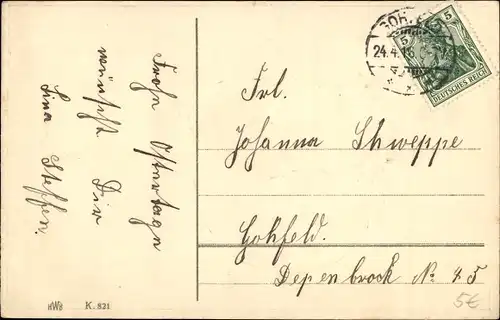 Frohe Ostertage
wünscht Dir
Lina Steffen.
Frl.
Johanna Schweppe
Gohfeld.
Depenbrock No 45
5
DEUTSCHES REICH
24.4.
HWB K. 821
5€